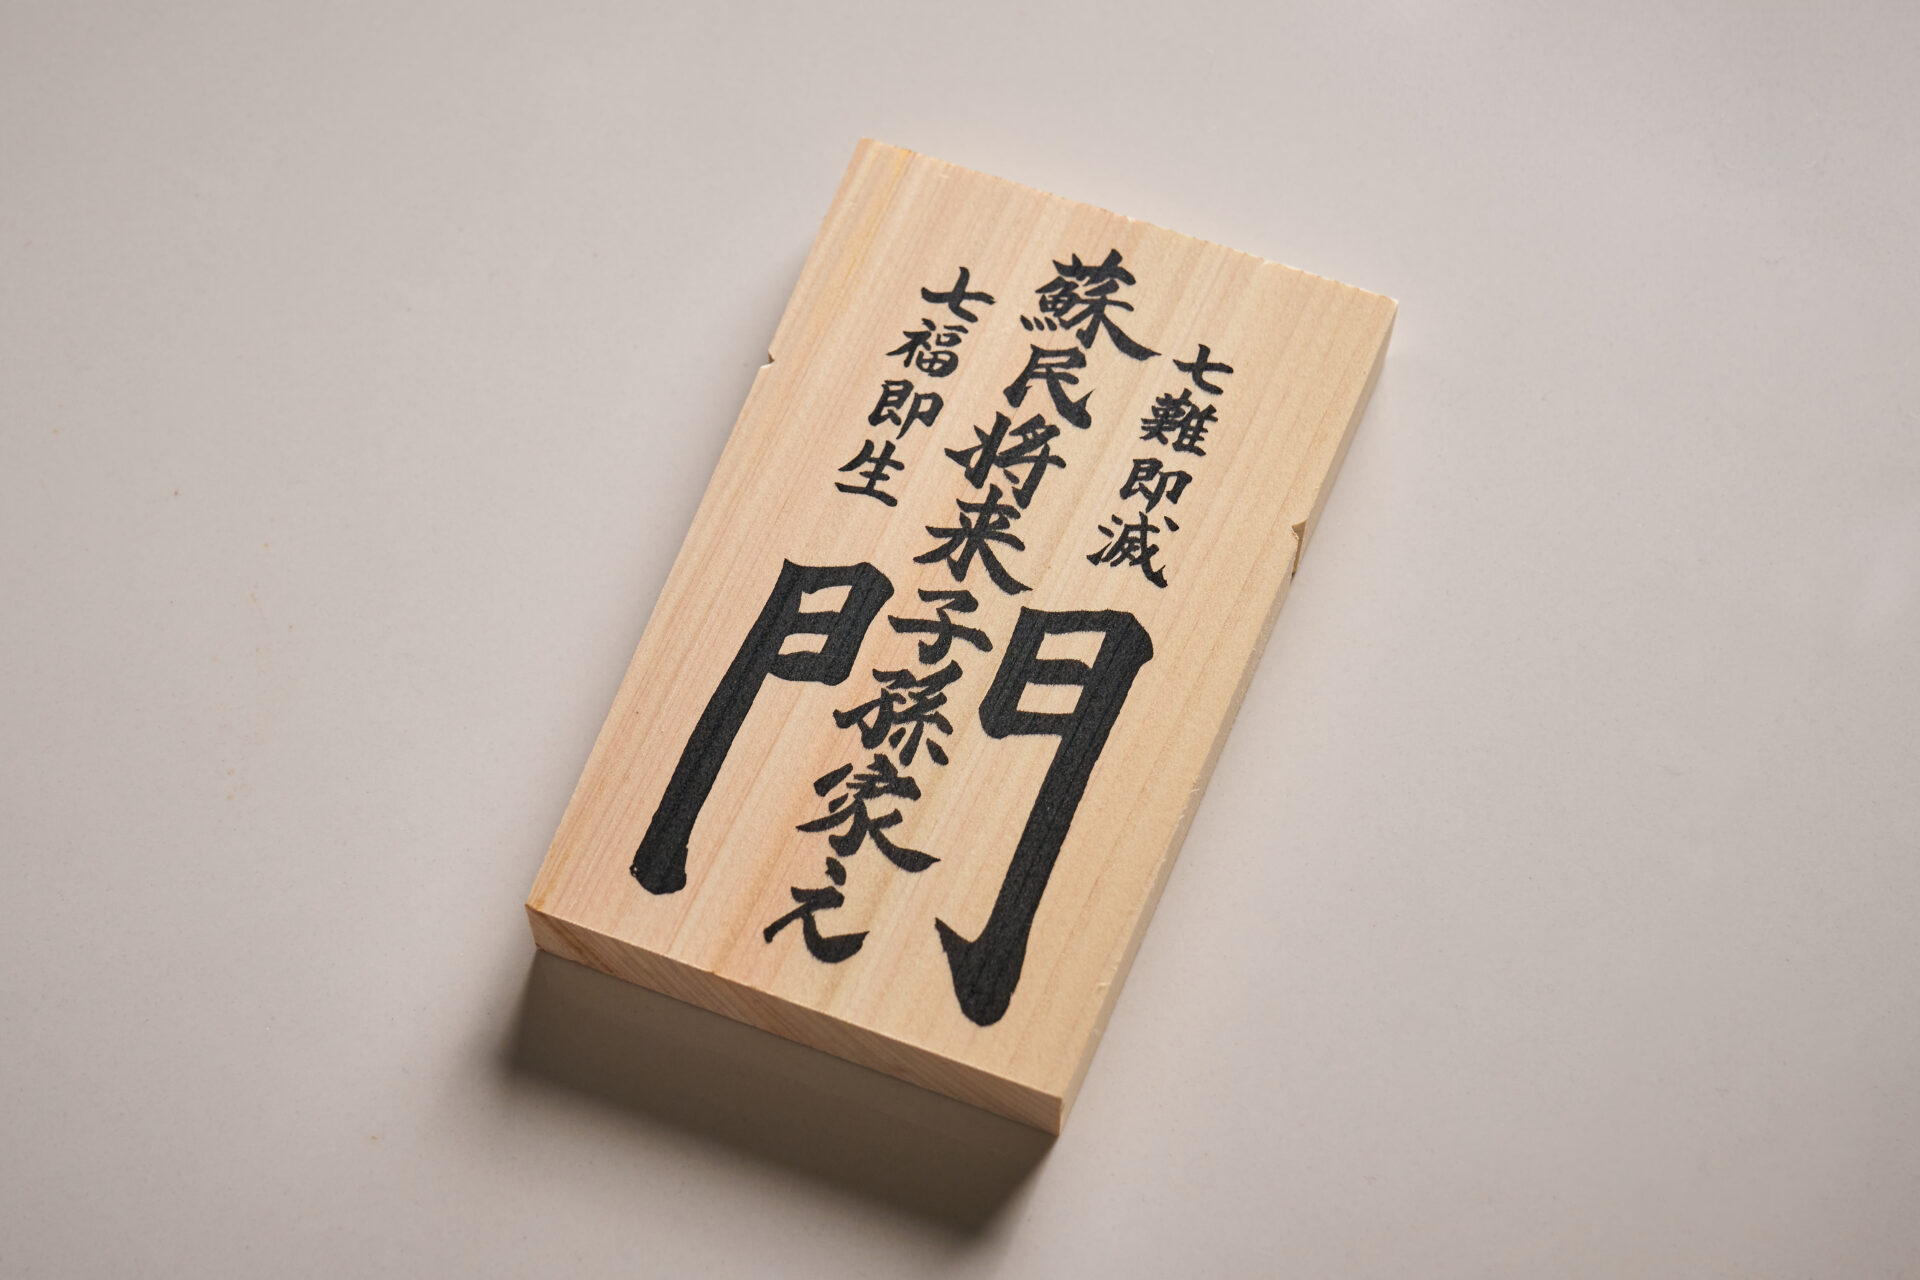 七難即滅
蘇民将来子孫家之門
七福即生